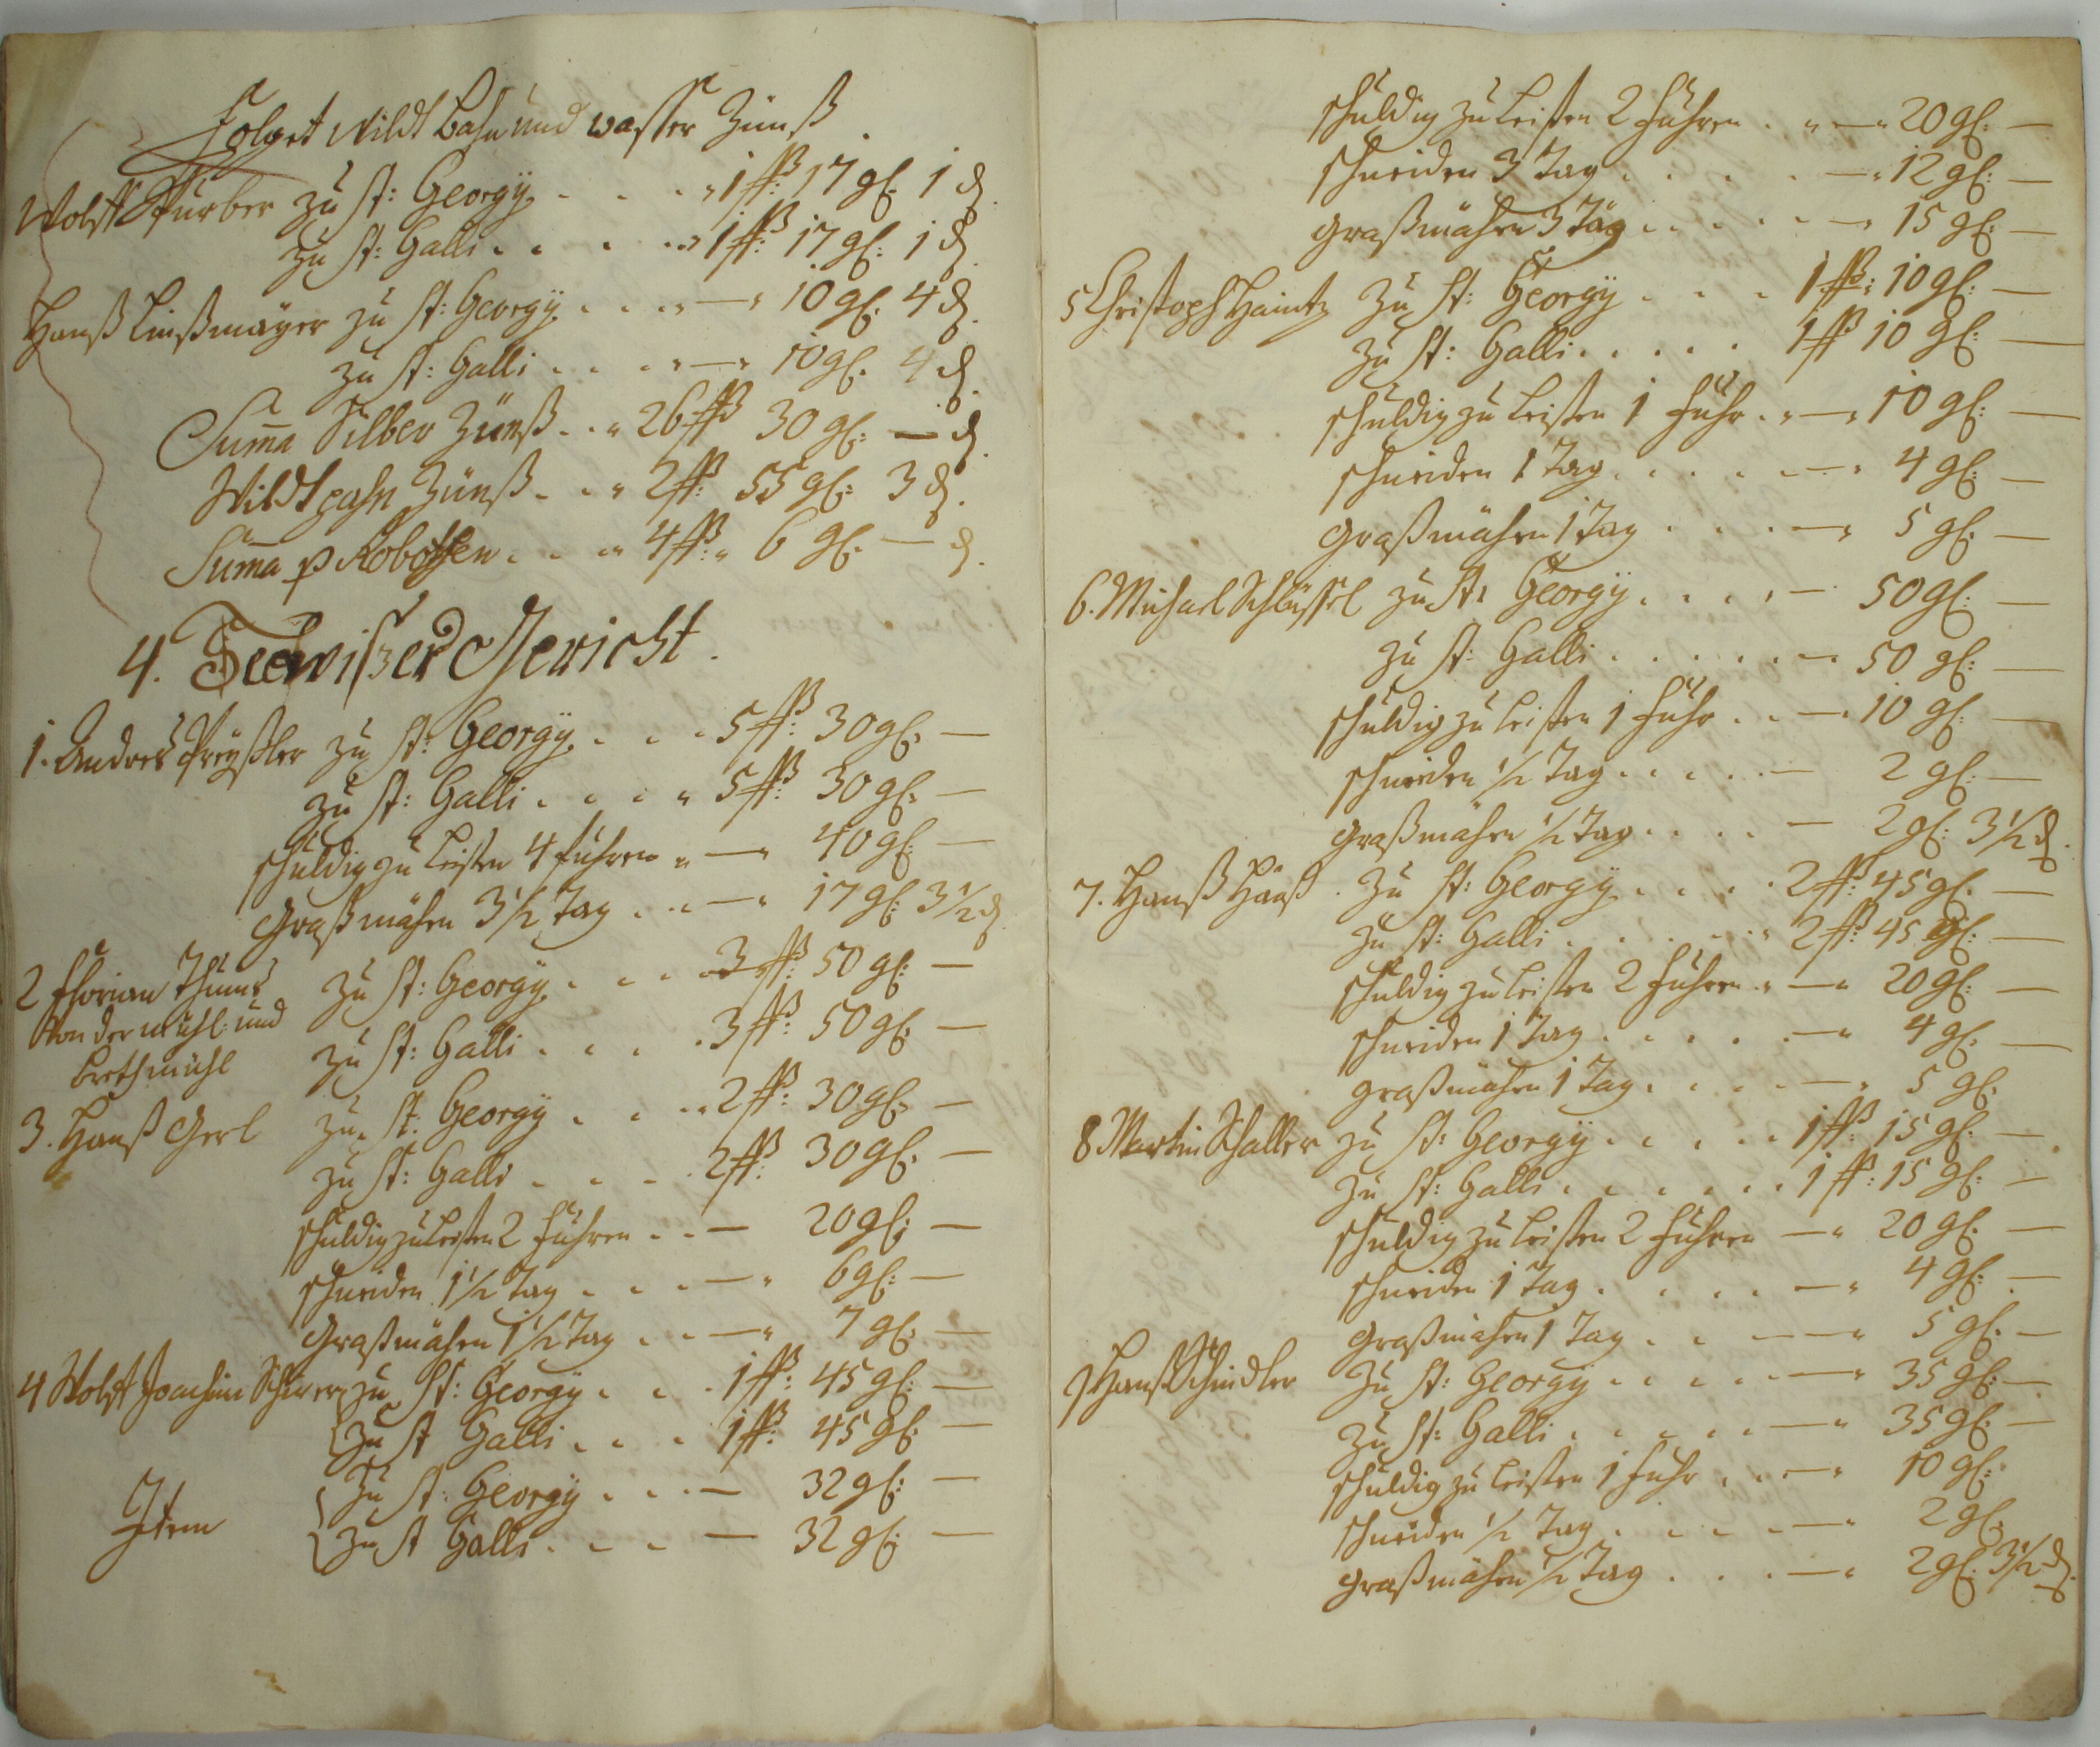 Folget Wildt Bahn und wasser Zünß.
Wolff Fürber zu St: Georgÿ . . . . 1 fl: 17 gl: 1 d.
zu St: Galli . . . . 1 fl: 17 gl: 1 d.
Hanß Linßmaÿer zu St: Georgÿ . . . — 10 gl: 4 d.
zu St: Galli . . . — 10 gl: 4 d.
Summa Silber Zünß . . 26 fl 30 gl: — d.
Wildtpahn Zünß . . . 2 fl: 55 gl: 3 d.
Summa p Robothen . . . 4 fl: 6 gl: — d.
4. Gericht.
1. Andres Preÿßler zu St: Georgÿ . . . 5 fl: 30 gl: —
zu St: Galli . . . . 5 fl: 30 gl: —
schuldig zu Leisten 4 fuhren — 40 gl: —
Graßmähen 3 1/2 Tag . . — 17 gl: 3 1/2 d
2 Florian Thums zu St: Georgÿ . . . . 3 fl: 50 gl: —
Von der mühl: und
zu St: Galli . . . . 3 fl: 50 gl: —
Brethmühl
3. Hanß Gerl zu St: Georgÿ . . . 2 fl: 30 gl: —
zu St: Galli . . . . 2 fl: 30 gl: —
schuldig zu Leisten 2 fuhren . . — 20 gl: —
schneiden 1 1/2 Tag . . . — 6 gl: —
Graßmähen 1 1/2 Tag . . — 7 gl: —
4 Wolff Joachim zu St: Georgÿ . . . 1 fl: 45 gl: —
zu St Galli . . . 1 fl: 45 gl: —
zu St: Georgÿ . . . — 32 gl: —
Item
zu St Galli . . . . — 32 gl: —
schuldig zu Leisten 2 fuhren . — 20 gl: —
schneiden 3 Tag . . . . — 12 gl: —
Graßmähen 3 Täg . . . . — 15 gl: —
5 Christoph Haintz zu St: Georgÿ . . . 1 fl: 10 gl: —
zu St: Galli . . . . . 1 fl 10 gl: —
schuldig zu Leisten 1 fuhr . — 10 gl: —
schneiden 1 Tag . . . . — 4 gl: —
Graßmähen 1 Tag . . . — 5 gl: —
6. Michael Schlüssel zu St: Georgÿ . . . . — 50 gl: —
zu St: Galli . . . . . — 50 gl: —
schuldig zu Leisten 1 fuhr . . — 10 gl: —
schneiden 1/2 Tag . . . . — 2 gl: —
Graßmähen 1/2 Tag . . . . — 2 gl: 3 1/2 d.
7. Hanß Häuß . zu St: Georgÿ . . . . 2 fl: 45 gl: —
zu St: Galli . . . . . 2 fl: 45 gl: —
schuldig zu Leisten 2 fuhren . — 20 gl: —
schneiden 1 Tag . . . . . — 4 gl: —
Graßmähen 1 Tag . . . . — 5 gl:
8 Martin Schaller zu St: Georgÿ . . . . . 1 fl: 15 gl: —
zu St: Galli . . . . . . 1 fl: 15 gl: —
schuldig zu Leisten 2 fuhren — 20 gl: —
schneiden 1 Tag . . . . — 4 gl: —
Graßmähen 1 Tag . . — 5 gl: —
9 Hanß Schindler zu St: Georgÿ . . . . . — 35 gl: —
zu St: Galli . . . . . — 35 gl: —
schuldig zu Leisten 1 fuhr . . — 10 gl:
schneiden 1/2 Tag . . . . — 2 gl:
Graßmähen 1/2 Tag . . . — 2 gl: 3 1/2 d.